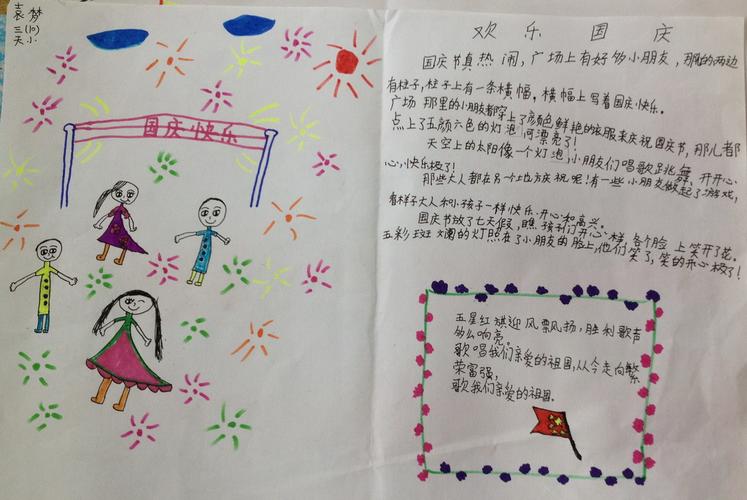 袁梦
三(10)
天小
国庆快乐
欢乐国庆
国庆节真热闹,广场上有好多小朋友,那的两边
有柱子,柱子上有一条横幅,横幅上写着国庆快乐。
广场那里的小朋友都穿上了颜色鲜艳的衣服来庆祝国庆节,那儿都
点上了五颜六色的灯泡,可漂亮了!
天空上的太阳像一个灯泡,小朋友们唱歌跳舞,开开心
心,快乐极了!
那些大人都在另个地方庆祝呢!有一些小朋友做起了游戏,
看样子大人和小孩子一样快乐开心和高兴。
国庆节放了七天假,瞧孩子们开心样,各个脸上笑开了花。
五彩斑斓的灯照在了小朋友的脸上,他们笑了,笑的开心极了!
五星红旗迎风飘扬,胜利歌声
多么响亮。
歌唱我们亲爱的祖国,从今走向繁
荣富强,
歌我们亲爱的祖国.